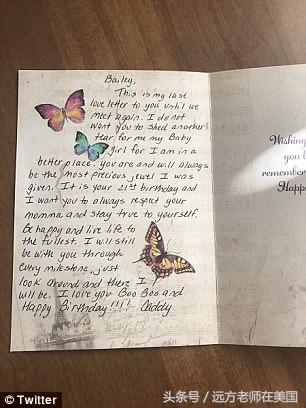 Bailey,
This is my last
love letter to you until we
meet again. I do not
want you to shed another
tear for me my Baby
girl for I am in a
better place. you are and will always
be the most precious jewel I was
given. It is your 21st birthday and
I want you to always respect your
momma and stay true to yourself.
Be happy and live life to
the fullest. I will still
be with you through
every milestone, just
look around and there I
will be. I love you Boo Boo and
Happy Birthday!!!! Daddy
Wishing
you l
remember
Happ
© Twitter
头条号 / 远方老师在美国